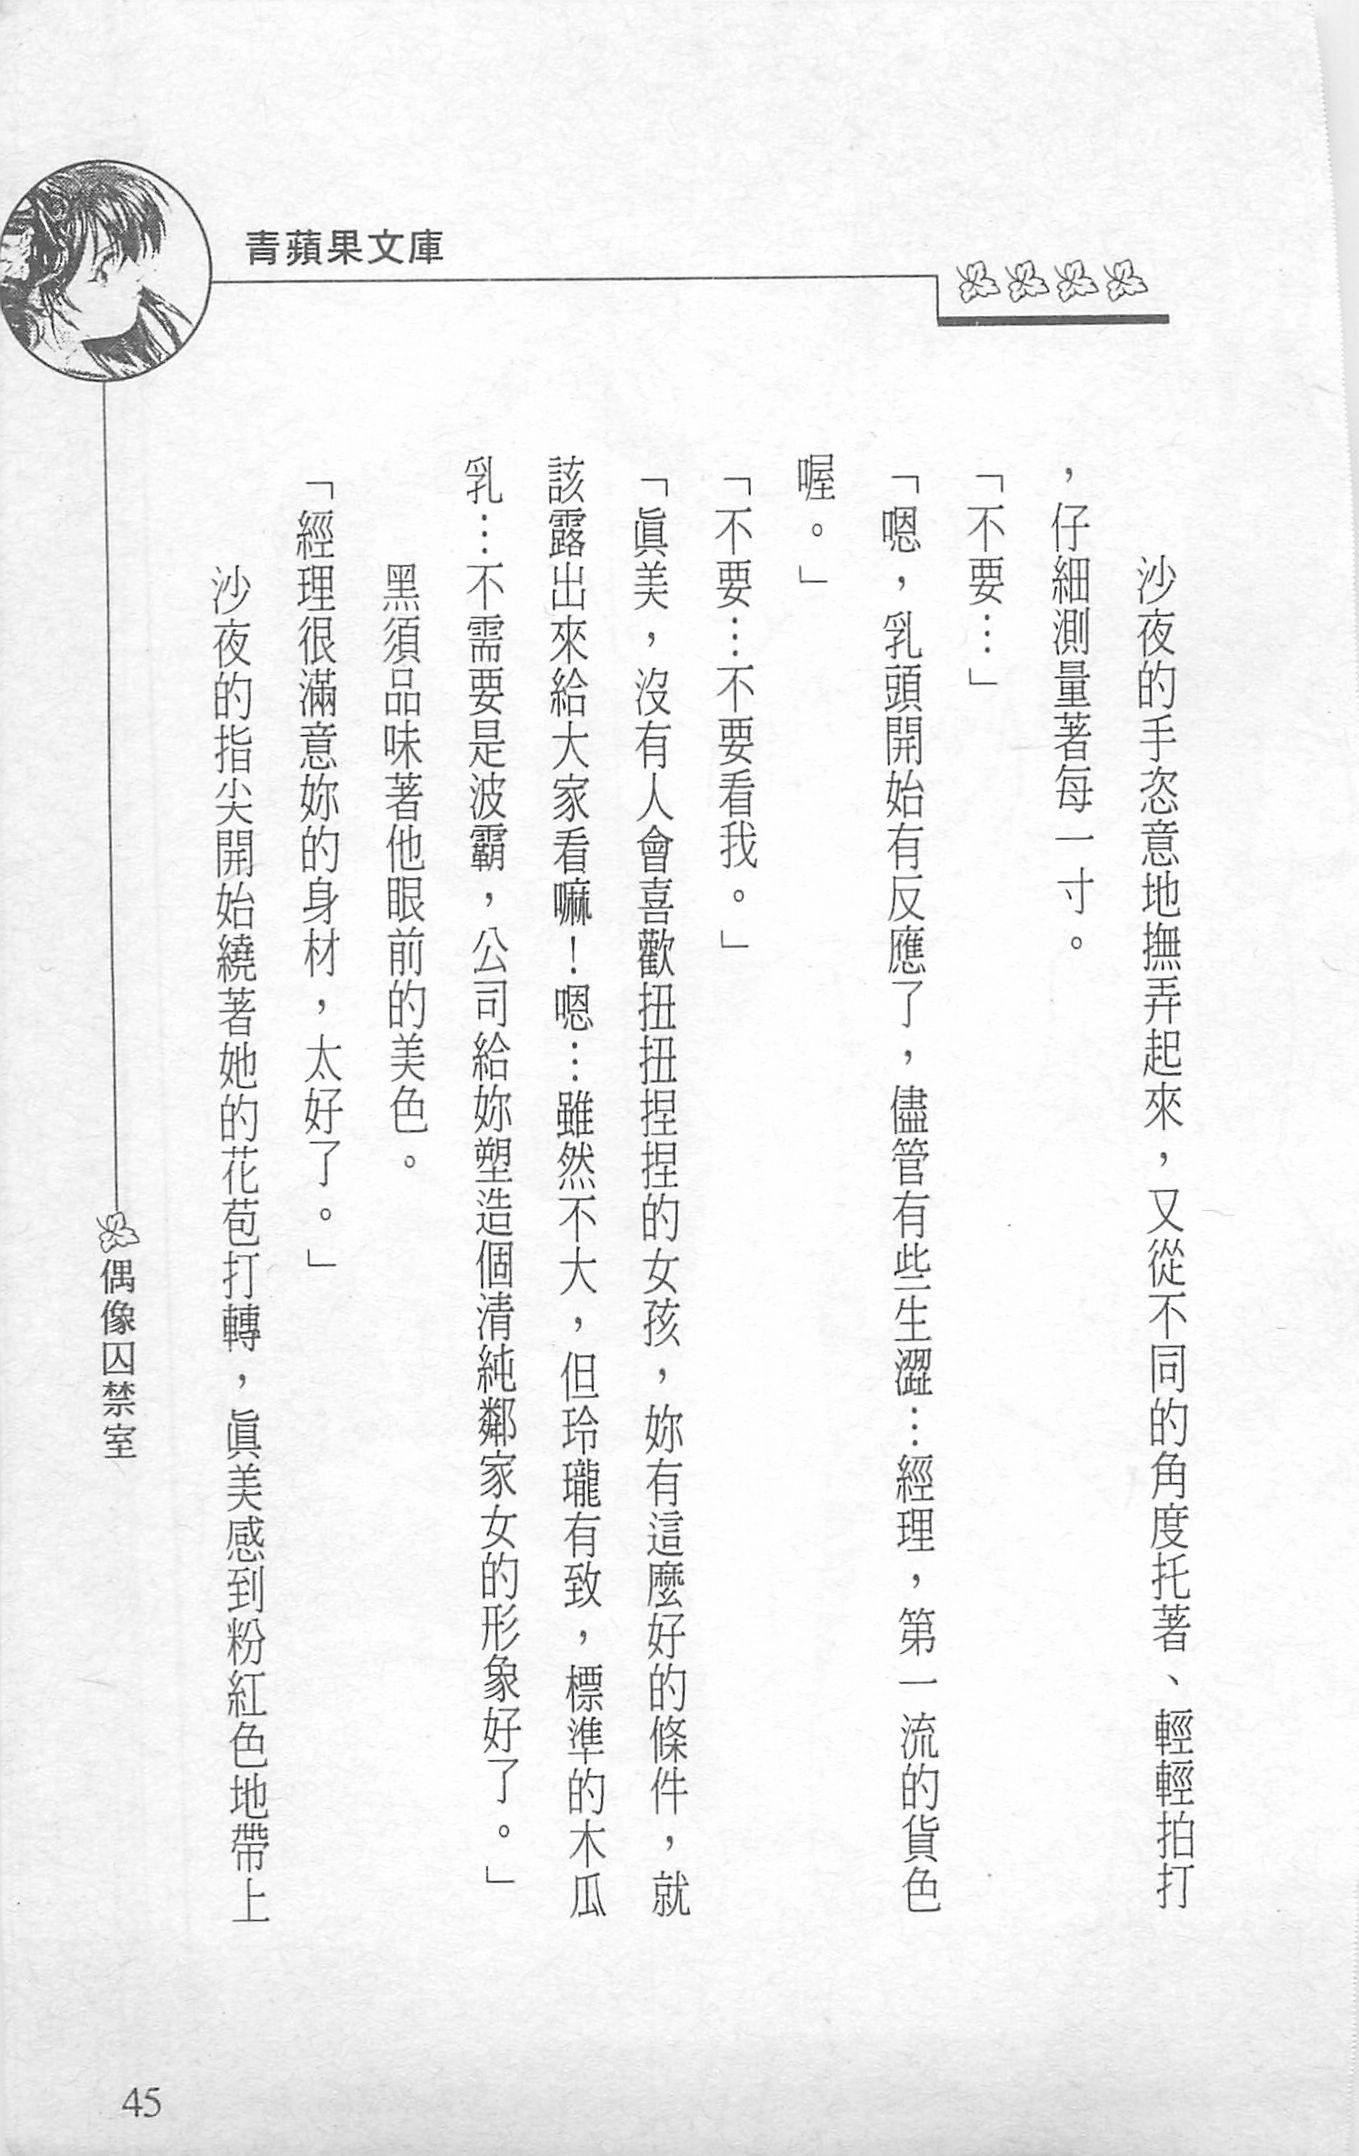 青蘋果文庫
沙夜的手恣意地撫弄起來，又從不同的角度托著、輕輕拍打
，仔細測量著每一寸。
「不要…」
「嗯，乳頭開始有反應了，儘管有些生澀…經理，第一流的貨色
喔。」
「不要…不要看我。」
「眞美，沒有人會喜歡扭扭捏捏的女孩，妳有這麼好的條件，就
該露出來給大家看嘛！嗯…雖然不大，但玲瓏有致，標準的木瓜
乳…不需要是波霸，公司給妳塑造個清純鄰家女的形象好了。」
黑須品味著他眼前的美色。
「經理很滿意妳的身材，太好了。」
沙夜的指尖開始繞著她的花苞打轉，眞美感到粉紅色地帶上
偶像囚禁室
45